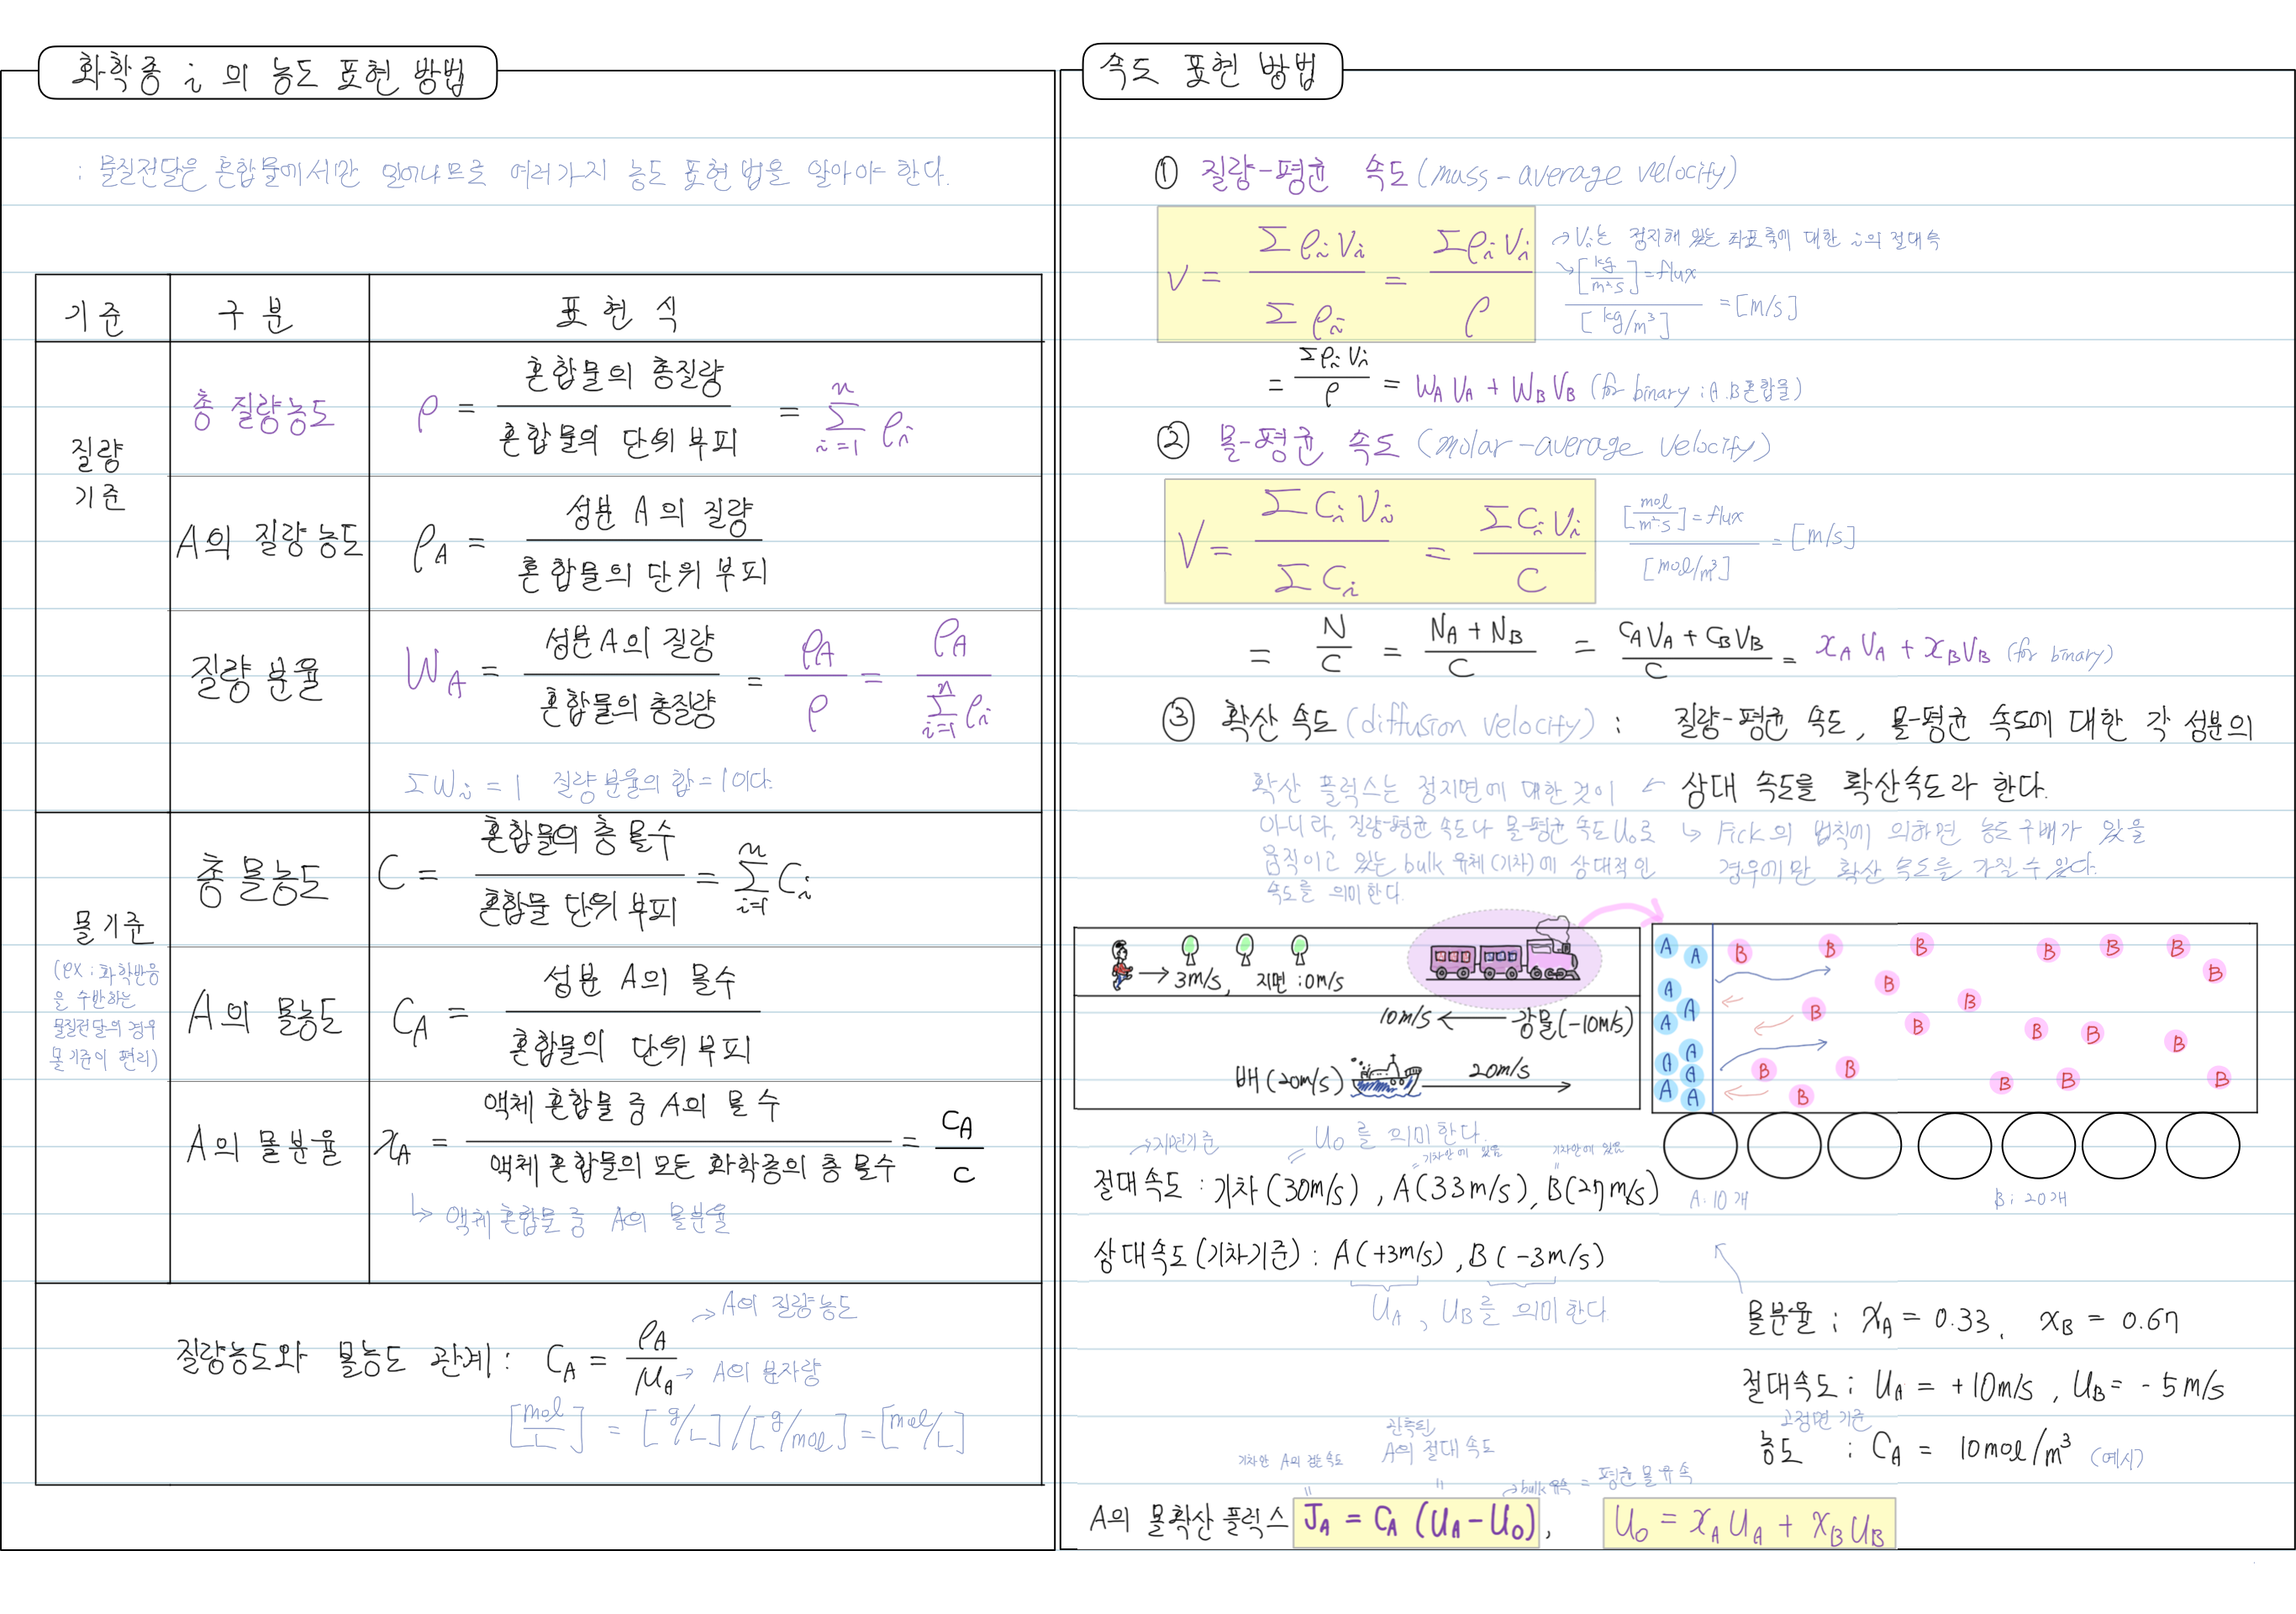 화학종 i 의 농도 표현 방법
: 물질전달은 혼합물에서만 일어나므로 여러가지 농도 표현 법을 알아야 한다.
기준 구분 표현 식
질량 기준
총 질량농도 ρ = 혼합물의 총질량 / 혼합물의 단위 부피 = Σ(i=1, n) ρi
A의 질량 농도 ρA = 성분 A의 질량 / 혼합물의 단위 부피
질량 분율 WA = 성분 A의 질량 / 혼합물의 총질량 = ρA / ρ = ρA / Σ(i=1, n) ρi
ΣWi = 1 질량 분율의 합 = 1 이다.
몰 기준
(ex ; 화학반응
을 수반하는
물질전달의 경우
몰 기준이 편리)
총 몰농도 C = 혼합물의 총 몰수 / 혼합물 단위 부피 = Σ(i=1, n) Ci
A의 몰농도 CA = 성분 A의 몰수 / 혼합물의 단위 부피
A의 몰분율 xA = 액체 혼합물 중 A의 몰 수 / 액체 혼합물의 모든 화학종의 총 몰수 = CA / C
↳ 액체 혼합물 중 A의 몰분율
질량농도와 몰농도 관계 : CA = ρA / MA
→ A의 질량농도
→ A의 분자량
[mol/L] = [g/L] / [g/mol] = [mol/L]
속도 표현 방법
① 질량-평균 속도 (mass-average velocity)
v = Σρi vi / Σρi = Σρi vi / ρ
→ Vi는 정지해 있는 좌표축에 대한 i의 절대속
↘ [kg/m²s] = flux / [kg/m³] = [m/s]
= Σρi vi / ρ = WA VA + WB VB (for binary ; A.B혼합물)
② 몰-평균 속도 (molar-average velocity)
V = ΣCi Vi / ΣCi = ΣCi Vi / C
[mol/m²·s] = flux / [mol/m³] = [m/s]
= N / C = NA + NB / C = CA VA + CB VB / C = xA VA + xB VB (for binary)
③ 확산 속도 (diffusion velocity) : 질량-평균 속도, 몰-평균 속도에 대한 각 성분의
상대 속도를 확산속도라 한다.
확산 플럭스는 정지면에 대한 것이 ←
아니라, 질량-평균 속도나 몰-평균 속도 U₀로
움직이고 있는 bulk 유체(기차)에 상대적인
속도를 의미한다.
↳ Fick의 법칙에 의하면 농도구배가 있을
경우에만 확산 속도를 가질 수 있다.
→ 3m/s, 지면 : 0m/s
10m/s ← 강물(-10m/s)
배(20m/s) 20m/s →
A A A A A A A A A A
B B B B B B B B B B B B B B B B B B B B
A : 10개 B ; 20개
→지면기준
U₀를 의미한다.
기차안에 있음 기차안에 있음
절대속도 : 기차(30m/s), A(33m/s), B(27m/s)
상대속도(기차기준) : A(+3m/s), B(-3m/s)
UA, UB를 의미한다
몰분율 ; xA = 0.33, xB = 0.67
절대속도 ; UA = +10m/s, UB = -5m/s
고정면 기준
농도 ; CA = 10mol/m³ (예시)
관측된
A의 절대 속도
→bulk 유속 = 평균 몰유속
A의 몰확산 플럭스 JA = CA (UA - U₀), U₀ = xA UA + xB UB